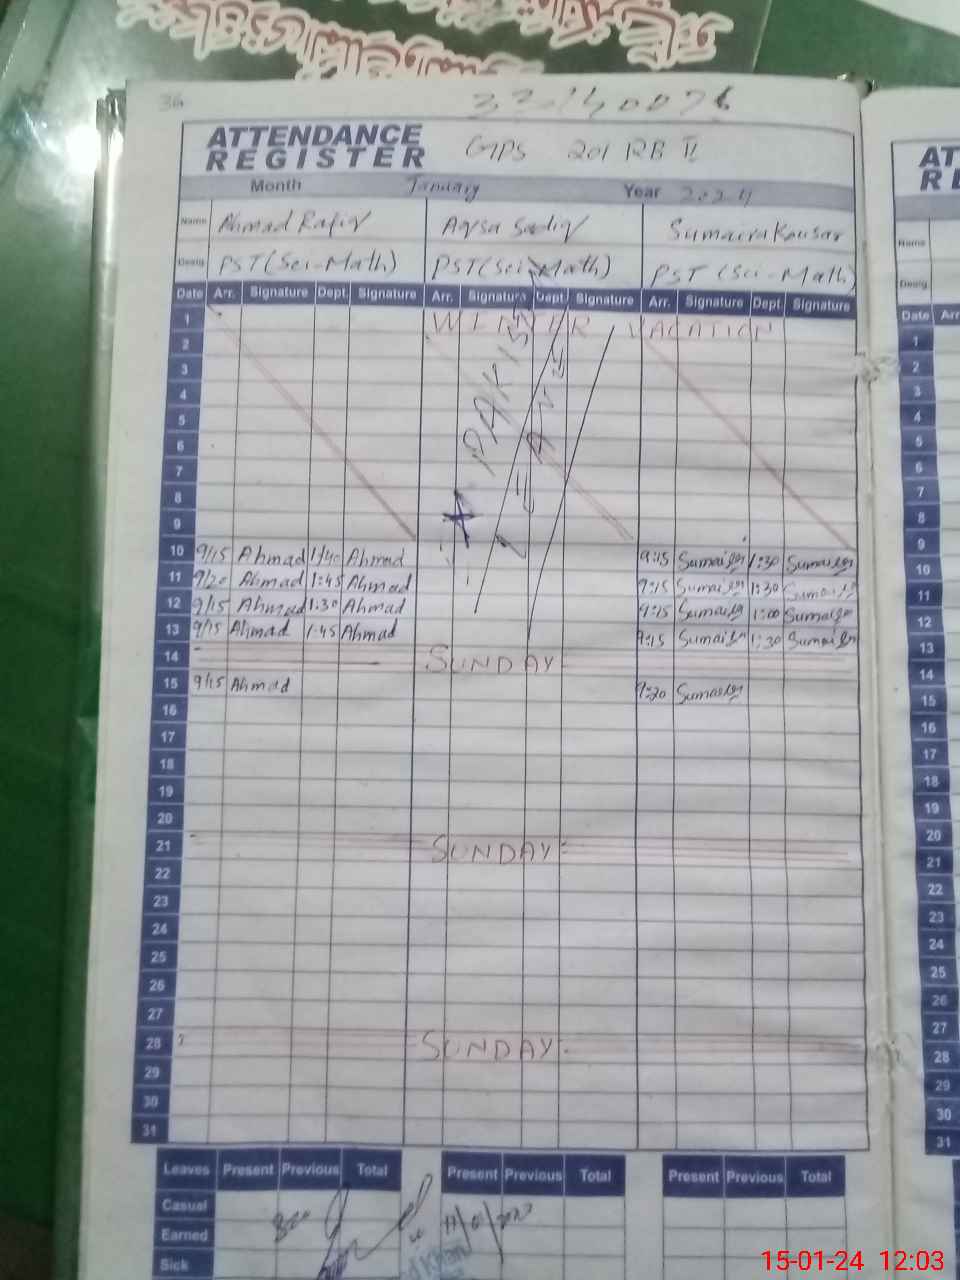 36
33140076
ATTENDANCE REGISTER GPS 201 RB II
Month January Year 2024
Name Ahmad Rafiq Aqsa Sadiq Sumaira Kousar
Desig. PST (Sci-Math) PST (Sci-Math) PST (Sci-Math)
Date Arr. Signature Dept. Signature Arr. Signature Dept. Signature Arr. Signature Dept. Signature
1 WINTER VACATION
2
3
4
5
6
7
8
9
10 9/15 Ahmad 1:40 Ahmad 9:15 Sumaira 1:30 Sumaira
11 9/20 Ahmad 1:45 Ahmad 9:15 Sumaira 1:30 Sumaira
12 9/15 Ahmad 1:30 Ahmad 9:15 Sumaira 1:00 Sumaira
13 9/15 Ahmad 1:45 Ahmad 9:15 Sumaira 1:30 Sumaira
14 SUNDAY
15 9/15 Ahmad 9:20 Sumaira
16
17
18
19
20
21 SUNDAY
22
23
24
25
26
27
28 SUNDAY
29
30
31
Leaves Present Previous Total Present Previous Total Present Previous Total
Casual
Earned
Sick
AT
RE
Name
Desig.
Date Arr
1
2
3
4
5
6
7
8
9
10
11
12
13
14
15
16
17
18
19
20
21
22
23
24
25
26
27
28
29
30
31
15-01-24 12:03